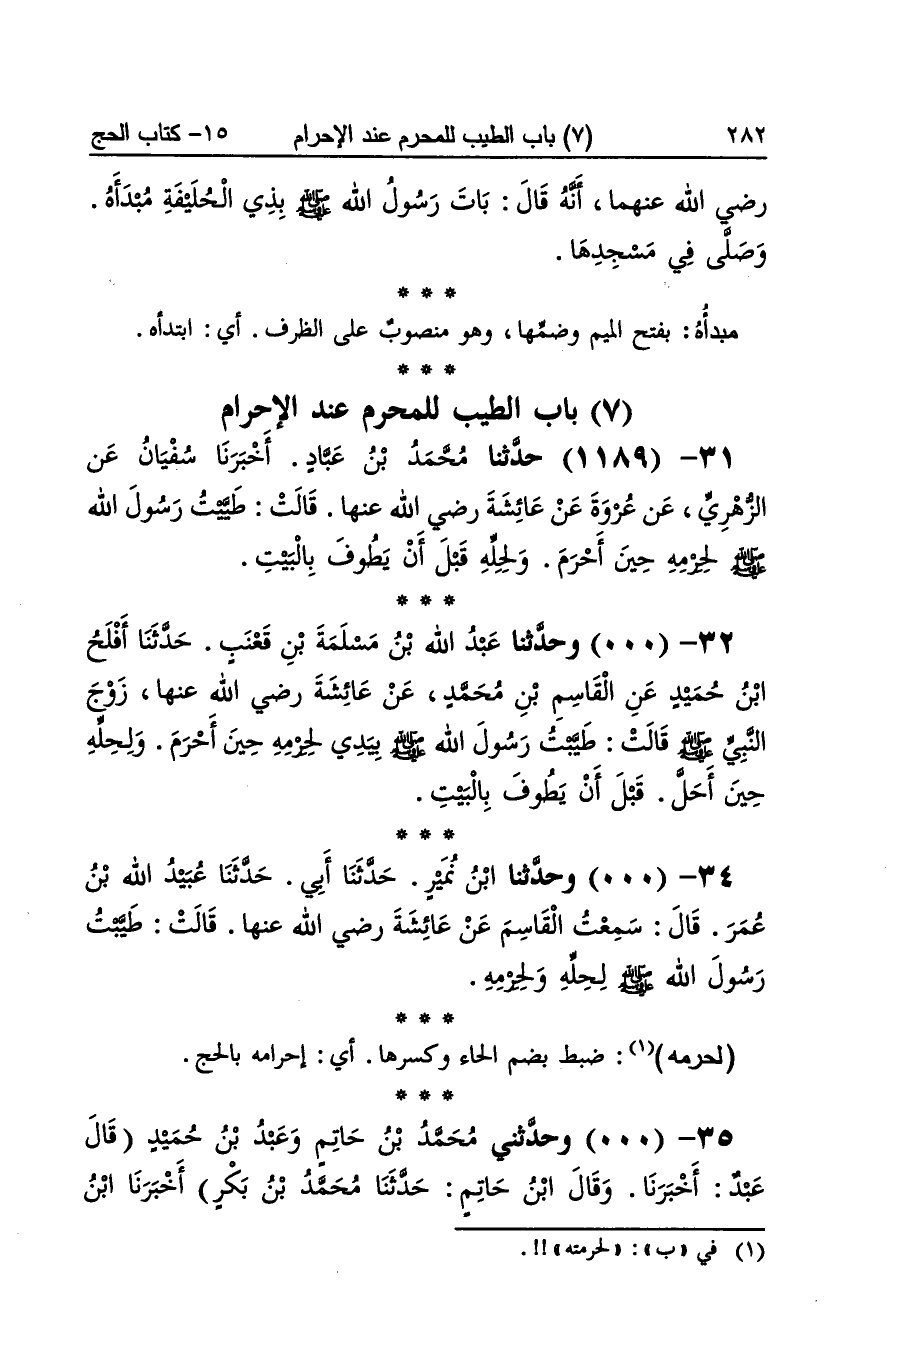 ٢٨٢ (٧) باب الطيب للمحرم عند الإحرام ١٥- كتاب الحج
رضي الله عنهما، أَنَّهُ قَالَ: بَاتَ رَسُولُ الله ﷺ بِذِي الْحُلَيْفَةِ مُبْدَأَهُ.
وَصَلَّى فِي مَسْجِدِهَا.
* * *
مبدأُهُ: بفتح الميم وضمِّها، وهو منصوبٌ على الظرف. أي: ابتدأه.
* * *
(٧) باب الطيب للمحرم عند الإحرام
٣١- (١١٨٩) حدَّثنا مُحَمَّدُ بْنُ عَبَّادٍ. أَخْبَرَنَا سُفْيَانُ عَن
الزُّهْرِيِّ، عَن عُرْوَةَ عَنْ عَائِشَةَ رضي الله عنها. قَالَتْ: طَيَّبْتُ رَسُولَ الله
ﷺ لِحِرْمِهِ حِينَ أَحْرَمَ. وَلِحِلِّهِ قَبْلَ أَنْ يَطُوفَ بِالْبَيْتِ.
* * *
٣٢- (٠٠٠) وحدَّثنا عَبْدُ الله بْنُ مَسْلَمَةَ بْنِ قَعْنَبٍ. حَدَّثَنَا أَفْلَحُ
ابْنُ حُمَيْدٍ عَنِ الْقَاسِمِ بْنِ مُحَمَّدٍ، عَنْ عَائِشَةَ رضي الله عنها، زَوْجَ
النَّبِيِّ ﷺ قَالَتْ: طَيَّبْتُ رَسُولَ الله ﷺ بِيَدِي لِحِرْمِهِ حِينَ أَحْرَمَ. وَلِحِلِّهِ
حِينَ أَحَلَّ. قَبْلَ أَنْ يَطُوفَ بِالْبَيْتِ.
* * *
٣٤- (٠٠٠) وحدَّثنا ابْنُ نُمَيْرٍ. حَدَّثَنَا أَبِي. حَدَّثَنَا عُبَيْدُ الله بْنُ
عُمَرَ. قَالَ: سَمِعْتُ الْقَاسِمَ عَنْ عَائِشَةَ رضي الله عنها. قَالَتْ: طَيَّبْتُ
رَسُولَ الله ﷺ لِحِلِّهِ وَلِحِرْمِهِ.
* * *
(لحرمه)(١): ضبط بضم الحاء وكسرها. أي: إحرامه بالحج.
* * *
٣٥- (٠٠٠) وحدَّثني مُحَمَّدُ بْنُ حَاتِمٍ وَعَبْدُ بْنُ حُمَيْدٍ (قَالَ
عَبْدٌ: أَخْبَرَنَا. وَقَالَ ابْنُ حَاتِمٍ: حَدَّثَنَا مُحَمَّدُ بْنُ بَكْرٍ) أَخْبَرَنَا ابْنُ
(١) في «ب»: «لحرمته»!!.